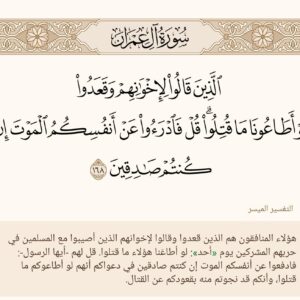 سُورَةُ آلِ عِمْرَان
ٱلَّذِينَ قَالُوا۟ لِإِخْوَٰنِهِمْ وَقَعَدُوا۟
أَطَاعُونَا مَا قُتِلُوا۟ۗ قُلْ فَٱدْرَءُوا۟ عَنْ أَنفُسِكُمُ ٱلْمَوْتَ إِن
كُنتُمْ صَٰدِقِينَ ١٦٨
التفسير الميسر
هؤلاء المنافقون هم الذين قعدوا وقالوا لإخوانهم الذين أصيبوا مع المسلمين في
حربهم المشركين يوم «أحد»: لو أطاعنا هؤلاء ما قتلوا. قل لهم -أيها الرسول-:
فادفعوا عن أنفسكم الموت إن كنتم صادقين في دعواكم أنهم لو أطاعوكم ما
قتلوا، وأنكم قد نجوتم منه بقعودكم عن القتال.